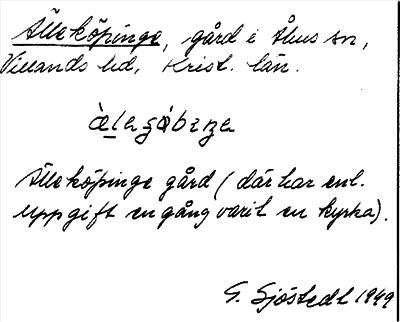 Ålleköpinge, gård i Åhus sn,
Villands hd, Krist. län.
Ålleköpinge gård (där har enl.
uppgift en gång varit en kyrka).
G. Sjöstedt 1949